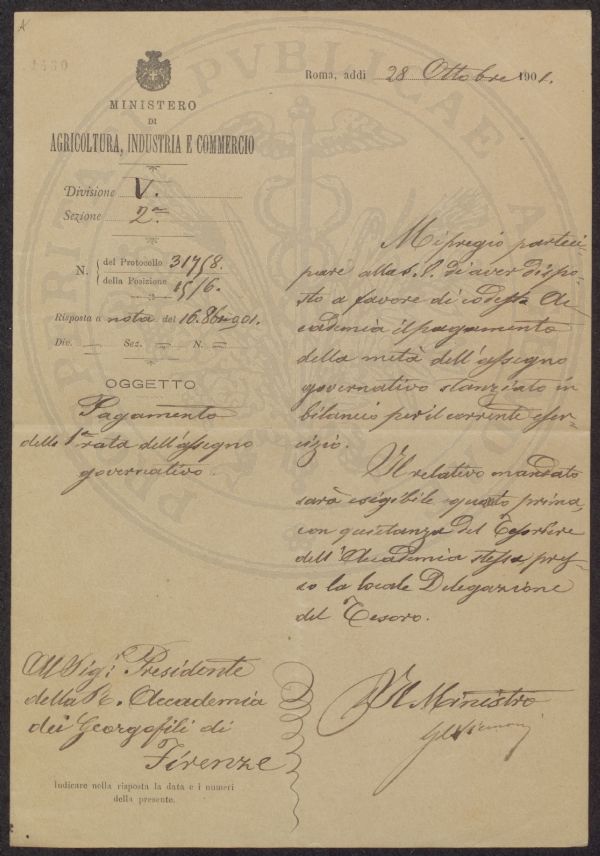 1430
Roma, addi 28 Ottobre 1901.
MINISTERO
DI
AGRICOLTURA, INDUSTRIA E COMMERCIO
Divisione V.
Sezione 2ª
N. del Protocollo 31758.
della Posizione 15/6.
Risposta a nota del 16. 8bre 901.
Div. — Sez. = N. =
OGGETTO
Pagamento
della 1ª rata dell'assegno
governativo.
Mi pregio parteci-
pare alla S. V. di aver dispo-
sto a favore di codesta Ac-
cademia il pagamento
della metà dell'assegno
governativo stanziato in
bilancio per il corrente eser-
cizio.
Il relativo mandato
sarà esigibile quanto prima,
con quietanza del Tesoriere
dell'Accademia stessa pres-
so la locale Delegazione
del Tesoro.
Al Sig. Presidente
della R. Accademia
dei Georgofili di
Firenze
Il Ministro
Indicare nella risposta la data e i numeri
della presente.